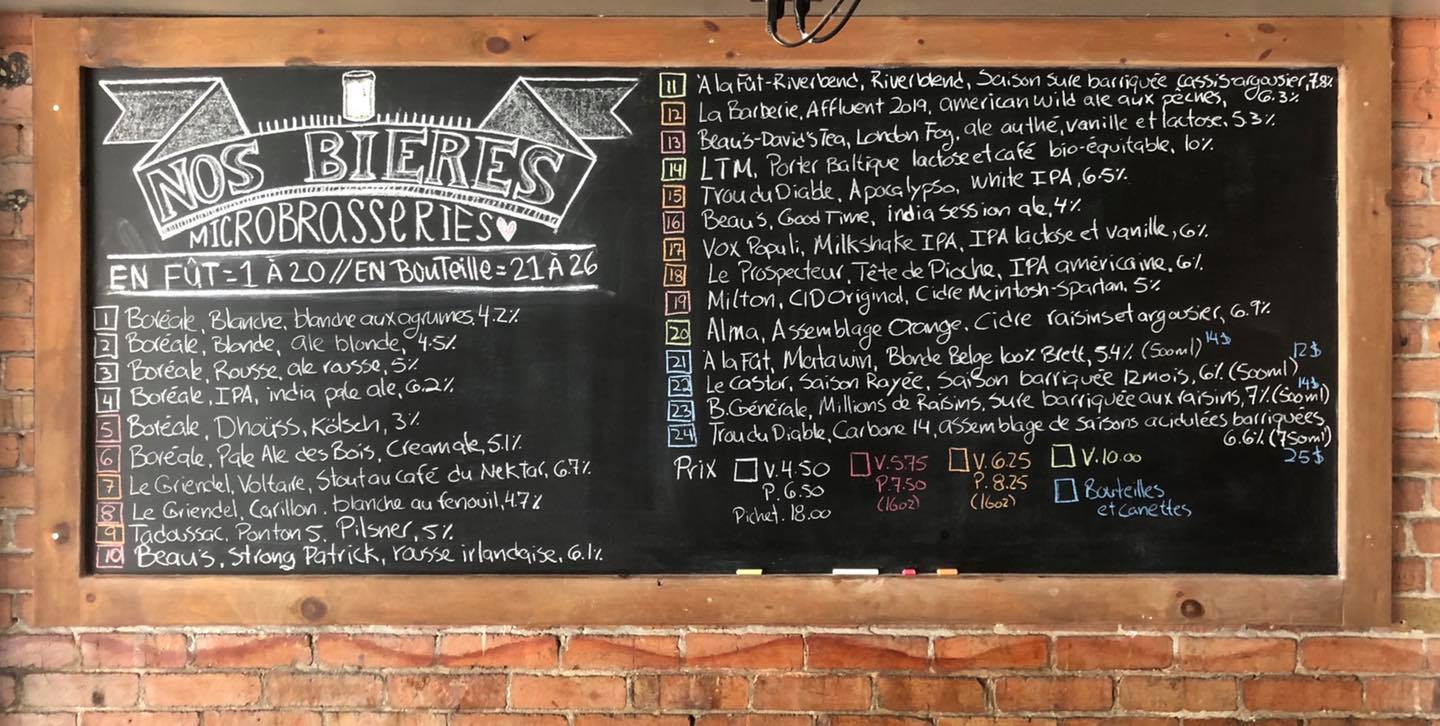 NOS BIERES
MICROBRASSERIES
EN FÛT = 1 À 20 // EN BOUTEILLE = 21 À 26
1 Boréale, Blanche, blanche aux agrumes, 4.2%
2 Boréale, Blonde, ale blonde, 4.5%
3 Boréale, Rousse, ale rousse, 5%
4 Boréale, IPA, india pale ale, 6.2%
5 Boréale, Dhoüss, Kölsch, 3%
6 Boréale, Pale Ale des Bois, Cream ale, 5.1%
7 Le Griendel, Voltaire, Stout au café du Nektar, 6.7%
8 Le Griendel, Carillon, blanche au fenouil, 4.7%
9 Tadoussac, Ponton 5, Pilsner, 5%
10 Beau's, Strong Patrick, rousse irlandaise, 6.1%
11 À la Fût-Riverbend, Riverblend, Saison Sure barriquée cassis argousier, 7.8%
12 La Barberie, Affluent 2019, american wild ale aux pêches, 6.3%
13 Beau's-David's Tea, London Fog, ale au thé, vanille et lactose, 5.3%
14 LTM, Porter Baltique lactose et café bio-équitable, 10%
15 Trou du Diable, Apocalypso, white IPA, 6.5%
16 Beau's, Good Time, india session ale, 4%
17 Vox Populi, Milkshake IPA, IPA lactose et vanille, 6%
18 Le Prospecteur, Tête de Pioche, IPA américaine, 6%
19 Milton, CID Original, Cidre McIntosh-Spartan, 5%
20 Alma, Assemblage Orange, Cidre raisins et argousier, 6.9%
21 À la Fût, Matawin, Blonde Belge 100% Brett, 5.4% (500ml) 14$
22 Le Castor, Saison Rayée, Saison barriquée 12 mois, 6% (500ml) 12$
23 B. Générale, Millions de Raisins, Sure barriquée aux raisins, 7% (500ml) 14$
24 Trou du Diable, Carbone 14, assemblage de saisons acidulées barriquées
6.6% (750ml)
25$
Prix V. 4.50 V. 5.75 V. 6.25 V. 10.00
P. 6.50 P. 7.50 P. 8.25 Bouteilles
Pichet. 18.00 (16oz) (16oz) et canettes